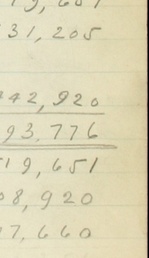 19,651
31,205
342,920
93,776
19,651
08,920
17,660